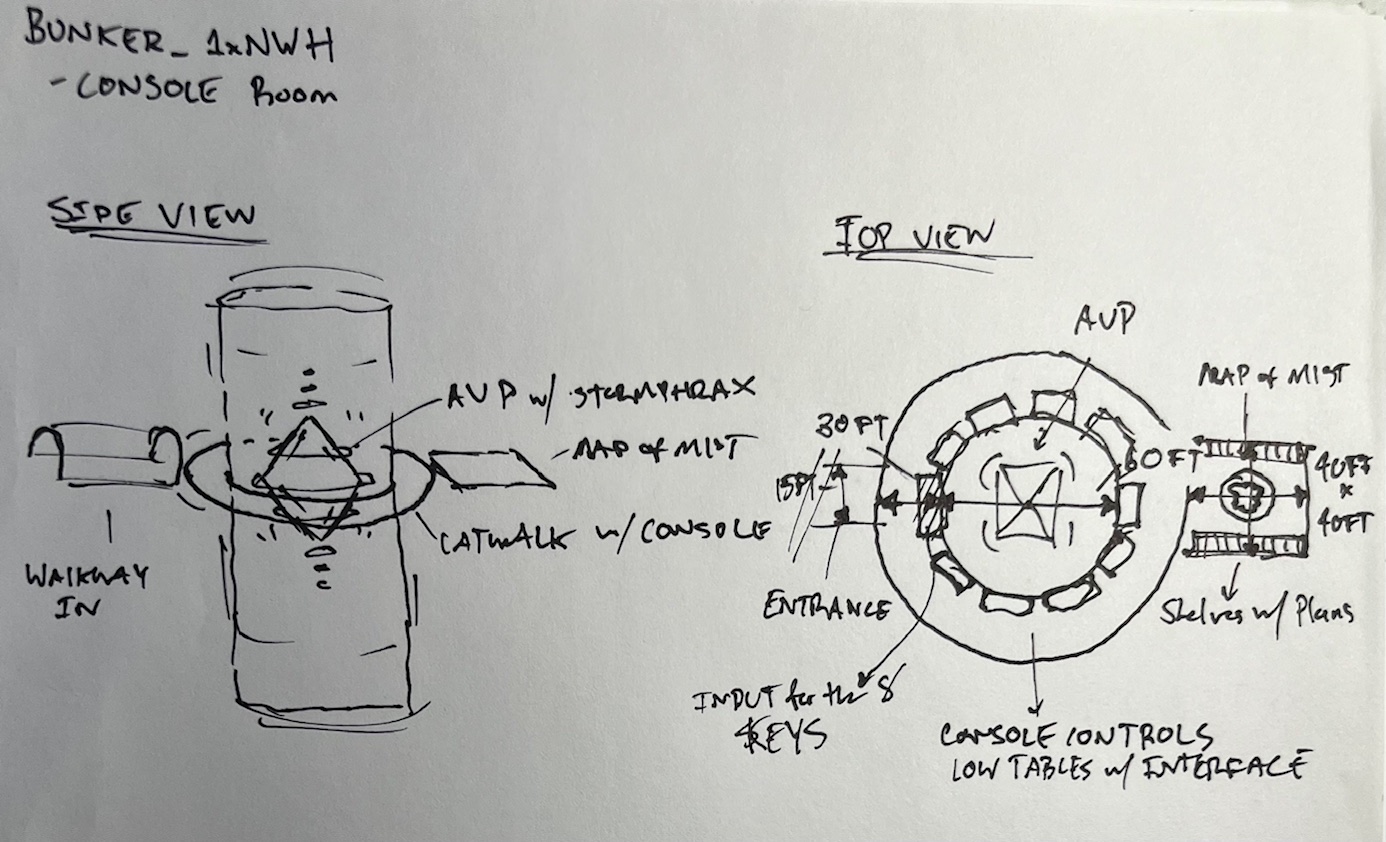 BUNKER_1xNWH
- CONSOLE Room
SIDE VIEW
AVP w/ STORMPHRAX
MAP of MIST
CATWALK w/ CONSOLE
WALKWAY
IN
TOP VIEW
AVP
MAP of MIST
30FT
60FT
15FT
40FT
x
40FT
ENTRANCE
Shelves w/ Plans
INPUT for the 8
KEYS
CONSOLE CONTROLS
LOW TABLES w/ INTERFACE